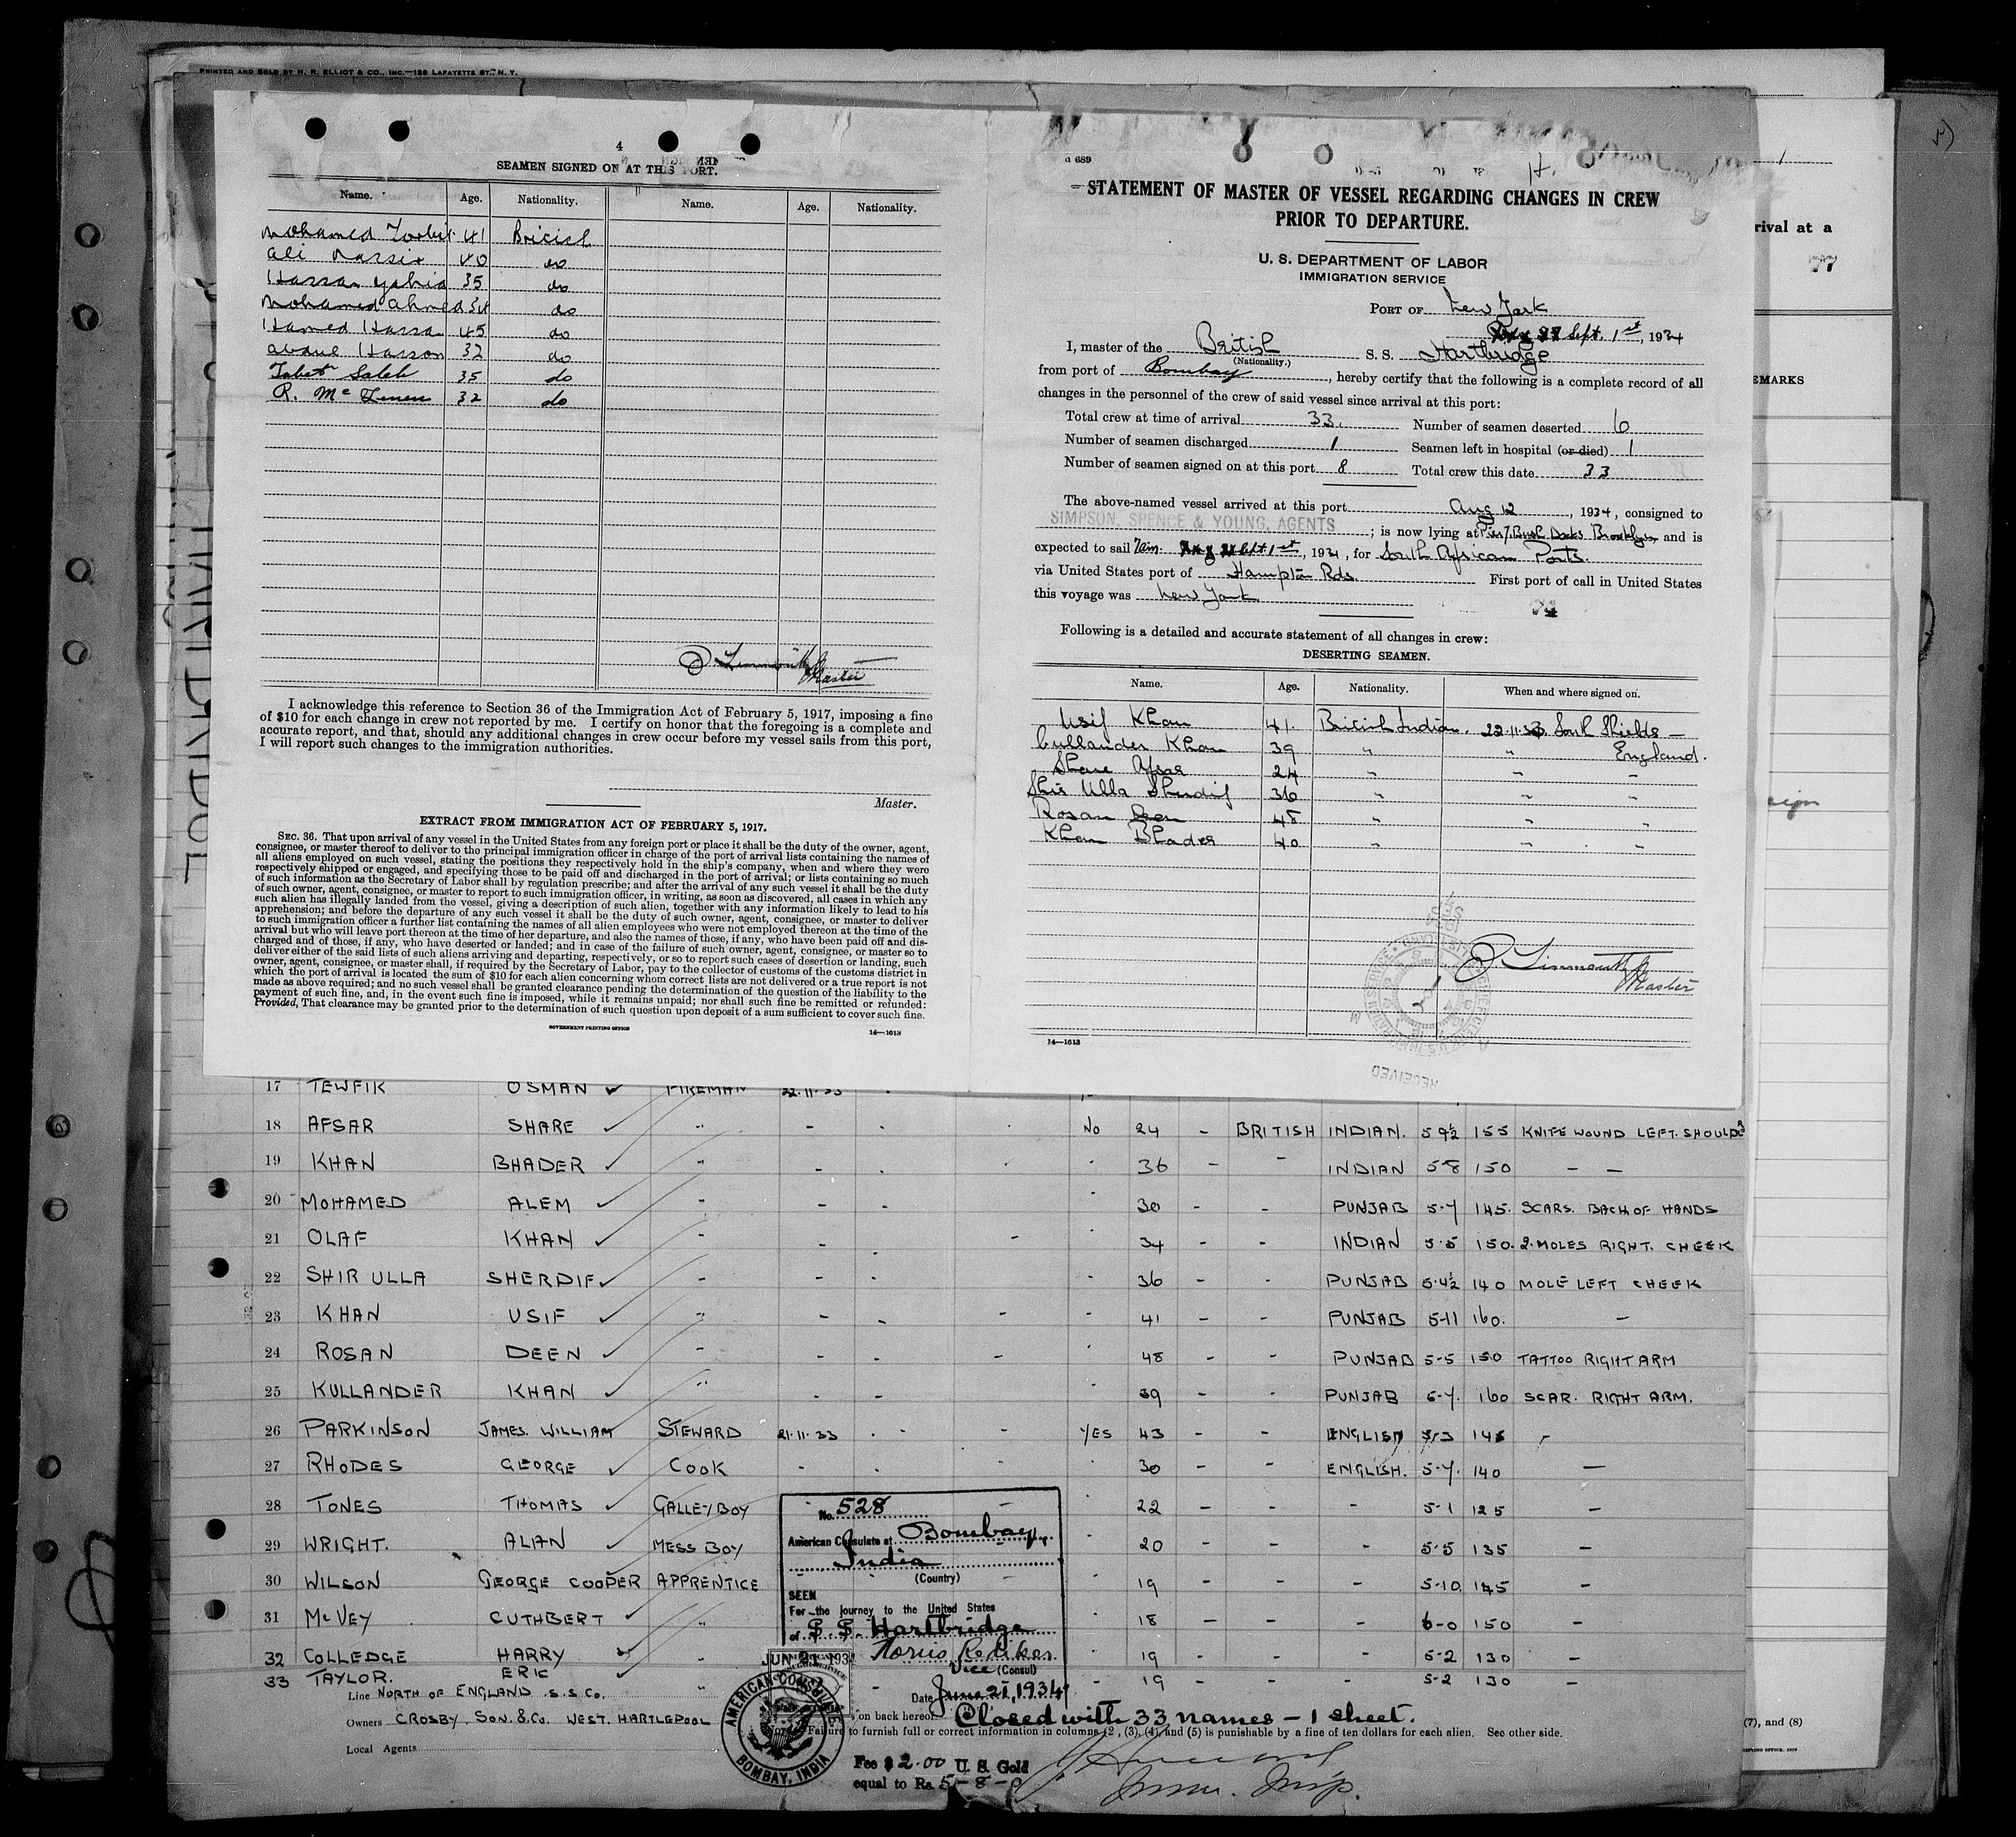 PRINTED AND SOLD BY H. R. ELLIOT & CO., INC.—129 LAFAYETTE ST., N. Y.
4
SEAMEN SIGNED ON AT THIS PORT.
Name. Age. Nationality. Name. Age. Nationality.
Mohamed 41 British
Ali 40 do
Hassan Yahia 35 do
Mohamed Ahmed 34 do
Hamed Hassan 45 do
Abdul Hasson 32 do
Tabet Saleh 35 do
R. Mc 32 do
Master
I acknowledge this reference to Section 36 of the Immigration Act of February 5, 1917, imposing a fine
of $10 for each change in crew not reported by me. I certify on honor that the foregoing is a complete and
accurate report, and that, should any additional changes in crew occur before my vessel sails from this port,
I will report such changes to the immigration authorities.
Master.
EXTRACT FROM IMMIGRATION ACT OF FEBRUARY 5, 1917.
SEC. 36. That upon arrival of any vessel in the United States from any foreign port or place it shall be the duty of the owner, agent,
consignee, or master thereof to deliver to the principal immigration officer in charge of the port of arrival lists containing the names of
all aliens employed on such vessel, stating the positions they respectively hold in the ship's company, when and where they were
respectively shipped or engaged, and specifying those to be paid off and discharged in the port of arrival; or lists containing so much
of such information as the Secretary of Labor shall by regulation prescribe; and after the arrival of any such vessel it shall be the duty
of such owner, agent, consignee, or master to report to such immigration officer, in writing, as soon as discovered, all cases in which any
such alien has illegally landed from the vessel, giving a description of such alien, together with any information likely to lead to his
apprehension; and before the departure of any such vessel it shall be the duty of such owner, agent, consignee, or master to deliver
to such immigration officer a further list containing the names of all alien employees who were not employed thereon at the time of the
arrival but who will leave port thereon at the time of her departure, and also the names of those, if any, who have been paid off and dis-
charged and of those, if any, who have deserted or landed; and in case of the failure of such owner, agent, consignee, or master so to
deliver either of the said lists of such aliens arriving and departing, respectively, or so to report such cases of desertion or landing, such
owner, agent, consignee, or master shall, if required by the Secretary of Labor, pay to the collector of customs of the customs district in
which the port of arrival is located the sum of $10 for each alien concerning whom correct lists are not delivered or a true report is not
made as above required; and no such vessel shall be granted clearance pending the determination of the question of the liability to the
payment of such fine, and, in the event such fine is imposed, while it remains unpaid; nor shall such fine be remitted or refunded:
Provided, That clearance may be granted prior to the determination of such question upon deposit of a sum sufficient to cover such fine.
GOVERNMENT PRINTING OFFICE 14—1613
689
STATEMENT OF MASTER OF VESSEL REGARDING CHANGES IN CREW
PRIOR TO DEPARTURE.
U. S. DEPARTMENT OF LABOR
IMMIGRATION SERVICE
PORT OF New York
Sept. 1st, 1934
I, master of the British S. S. Hartbridge
(Nationality.)
from port of Bombay, hereby certify that the following is a complete record of all
changes in the personnel of the crew of said vessel since arrival at this port:
Total crew at time of arrival 33. Number of seamen deserted 6
Number of seamen discharged 1 Seamen left in hospital (or died) 1
Number of seamen signed on at this port 8 Total crew this date 33
The above-named vessel arrived at this port Aug 12, 1934, consigned to
SIMPSON, SPENCE & YOUNG, AGENTS; is now lying at Pier 7 Bush Docks Brooklyn and is
expected to sail 7am. Sept 1st, 1934, for South African Ports.
via United States port of Hampton Rds. First port of call in United States
this voyage was New York
Following is a detailed and accurate statement of all changes in crew:
DESERTING SEAMEN.
Name. Age. Nationality. When and where signed on.
Usif Khan 41. British Indian. 22.11.33 South Shields —
Cullander Khan 39 " " England.
Share Afsar 24 " " "
Shir Ulla Sherdif 36 " " "
Rosan Deen 48 " " "
Khan Bhader 40 " " "
Master
RECEIVED
14—1613
rival at a
77
EMARKS
17 TEWFIK OSMAN ✓ FIREMAN 22.11.33
18 AFSAR SHARE ✓ " - No 24 - BRITISH INDIAN. 5 9½ 155 KNIFE WOUND LEFT. SHOULDER
19 KHAN BHADER ✓ " - 36 - - INDIAN 5-8 150 - -
20 MOHAMED ALEM ✓ " - 30 - - PUNJAB 5-7 145. SCARS. BACK OF HANDS
21 OLAF KHAN ✓ " - 34 - - INDIAN 5-5 150. 2. MOLES RIGHT. CHEEK
22 SHIR ULLA SHERDIF ✓ - - 36 - - PUNJAB 5-4½ 140 MOLE LEFT CHEEK
23 KHAN USIF ✓ " - - 41 - - PUNJAB 5-11 160. -
24 ROSAN DEEN ✓ " - - 48 - - PUNJAB 5-5 150 TATTOO RIGHT ARM
25 KULLANDER KHAN ✓ " - - 39 - - PUNJAB 5-7. 160 SCAR. RIGHT ARM.
26 PARKINSON JAMES. WILLIAM STEWARD 21.11.33 - YES 43 - - ENGLISH 5-3 145 -
27 RHODES GEORGE ✓ COOK - 30 - - ENGLISH. 5-7. 140 -
28 TONES THOMAS ✓ GALLEY BOY 22 - - - 5-1 125 -
29 WRIGHT. ALAN ✓ MESS BOY 20 - - - 5-5 135 -
30 WILSON GEORGE COOPER APPRENTICE 19 - - - 5-10 145 -
31 McVEY CUTHBERT ✓ " 18 - - - 6-0 150 -
32 COLLEDGE HARRY ✓ " 19 - - - 5-2 130 -
33 TAYLOR. ERIC ✓ " 19 - - - 5-2 130 -
No. 528
American Consulate at Bombay,
India
(Country)
SEEN
For the journey to the United States
of S. S. Hartbridge
Vice (Consul)
Date June 21, 1934
JUN 21 1934
AMERICAN CONSULATE
BOMBAY, INDIA
Line NORTH OF ENGLAND .S.S Co.
Owners CROSBY. SON. & Co. WEST. HARTLEPOOL
Local Agents
on back hereof. Closed with 33 names — 1 sheet.
Failure to furnish full or correct information in columns (2), (3), (4), and (5) is punishable by a fine of ten dollars for each alien. See other side.
Fee $2.00 U. S. Gold
equal to Rs 5-8-0
(7), and (8)